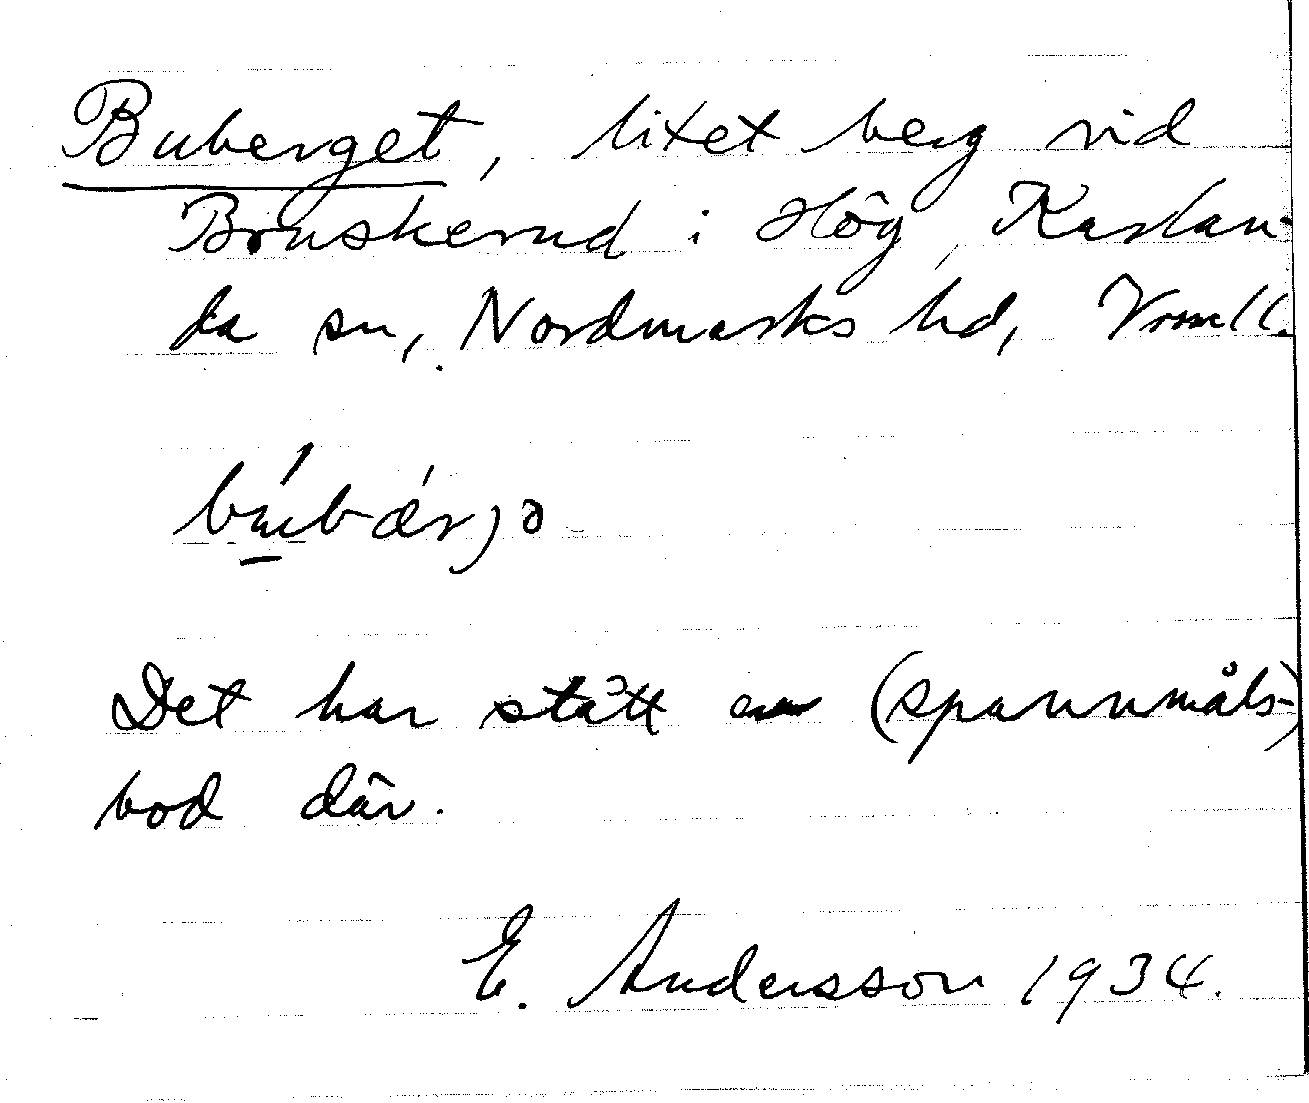 Buberget, litet berg vid
Bruskerud i Hög, Karlan-
da sn, Nordmarks hd, Vrmll.
bú̲bǽrjə
Det har stått en (spannmåls-)
bod där.
E. Andersson 1934.